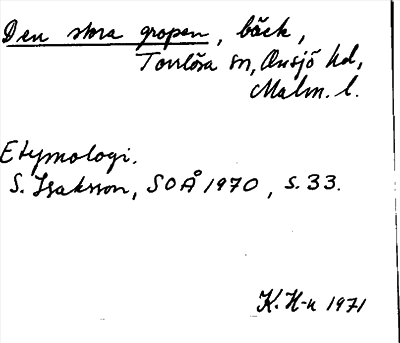 Den stora gropen, bäck,
Torrlösa sn, Onsjö hd,
Malm. l.
Etymologi.
S. Isaksson, SOÅ 1970, s. 33.
K. H-n 1971